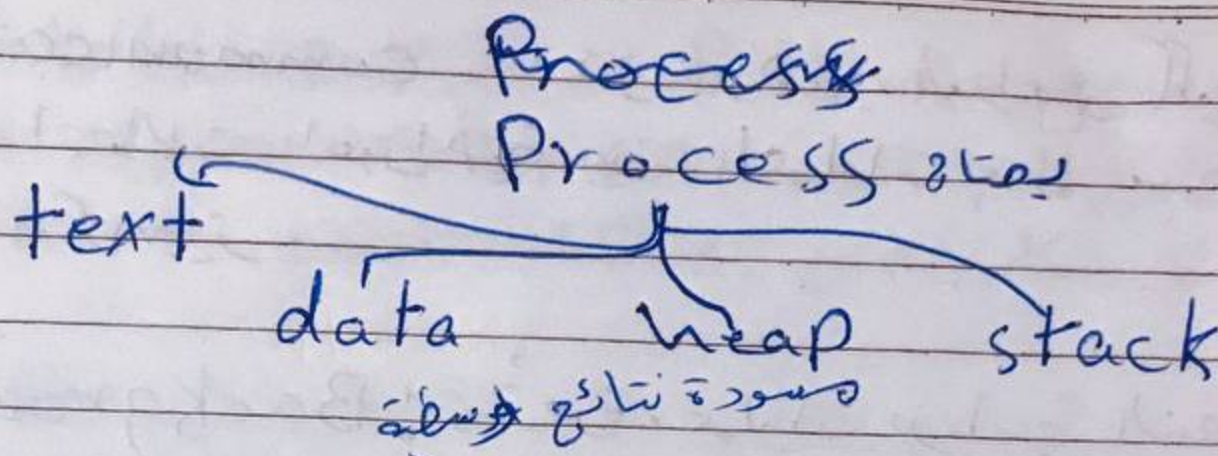 Process
Process يحتاج
text
data heap stack
مسودة نتائج وسطية